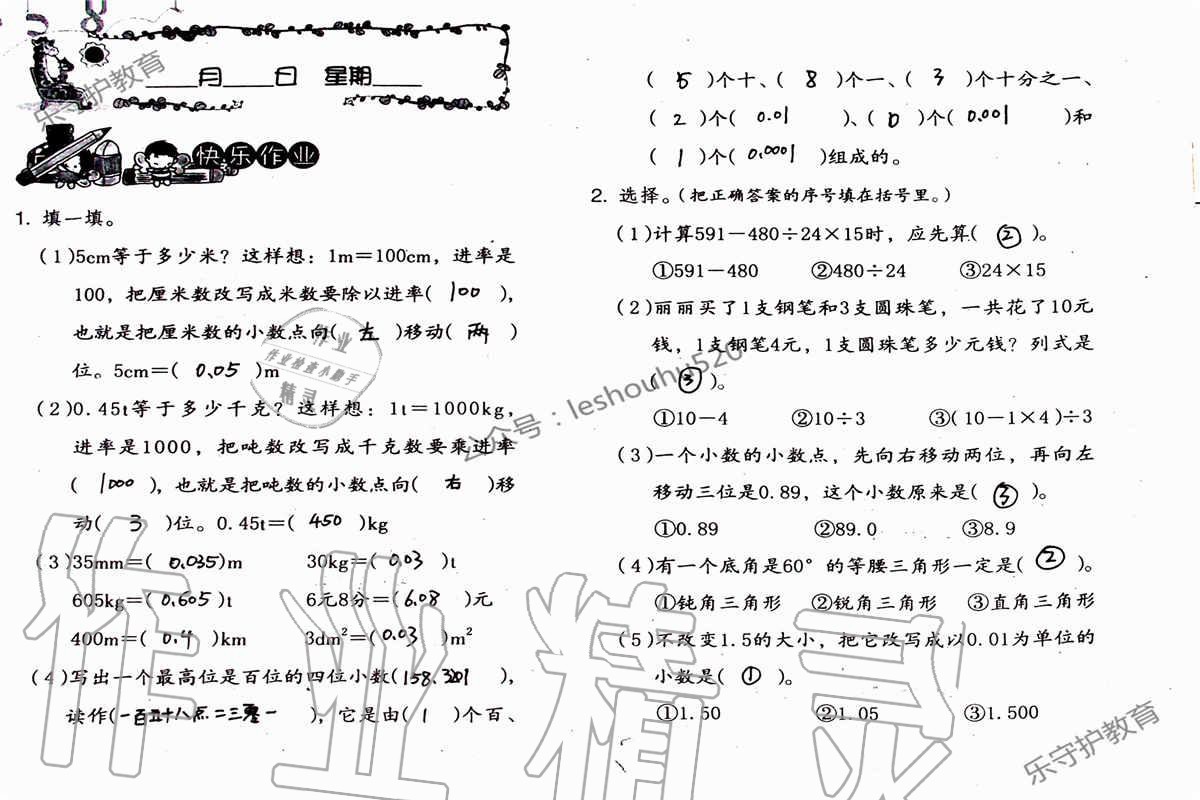 ____月____日 星期____
快乐作业
1. 填一填。
(1)5cm等于多少米？这样想：1m＝100cm，进率是
100，把厘米数改写成米数要除以进率( 100 )，
也就是把厘米数的小数点向( 左 )移动( 两 )
位。5cm＝( 0.05 )m
(2)0.45t等于多少千克？这样想：1t＝1000kg，
进率是1000，把吨数改写成千克数要乘进率
( 1000 )，也就是把吨数的小数点向( 右 )移
动( 3 )位。0.45t＝( 450 )kg
(3)35mm＝( 0.035)m 30kg＝( 0.03 )t
605kg＝( 0.605 )t 6元8分＝( 6.08 )元
400m＝( 0.4 )km 3dm²＝( 0.03 )m²
(4)写出一个最高位是百位的四位小数(158.3201 )，
读作(一百五十八点二三零一 )，它是由( 1 )个百、
( 5 )个十、( 8 )个一、( 3 )个十分之一、
( 2 )个( 0.01 )、( 0 )个( 0.001 )和
( 1 )个( 0.0001 )组成的。
2. 选择。(把正确答案的序号填在括号里。)
(1)计算591－480÷24×15时，应先算( ② )。
①591－480 ②480÷24 ③24×15
(2)丽丽买了1支钢笔和3支圆珠笔，一共花了10元
钱，1支钢笔4元，1支圆珠笔多少元钱？列式是
( ③ )。
①10－4 ②10÷3 ③(10－1×4)÷3
(3)一个小数的小数点，先向右移动两位，再向左
移动三位是0.89，这个小数原来是( ③ )。
①0.89 ②89.0 ③8.9
(4)有一个底角是60°的等腰三角形一定是( ② )。
①钝角三角形 ②锐角三角形 ③直角三角形
(5)不改变1.5的大小，把它改写成以0.01为单位的
小数是( ① )。
①1.50 ②1.05 ③1.500
乐守护教育
作业
作业检查小助手
精灵
公众号：leshouhu520
作业精灵
乐守护教育